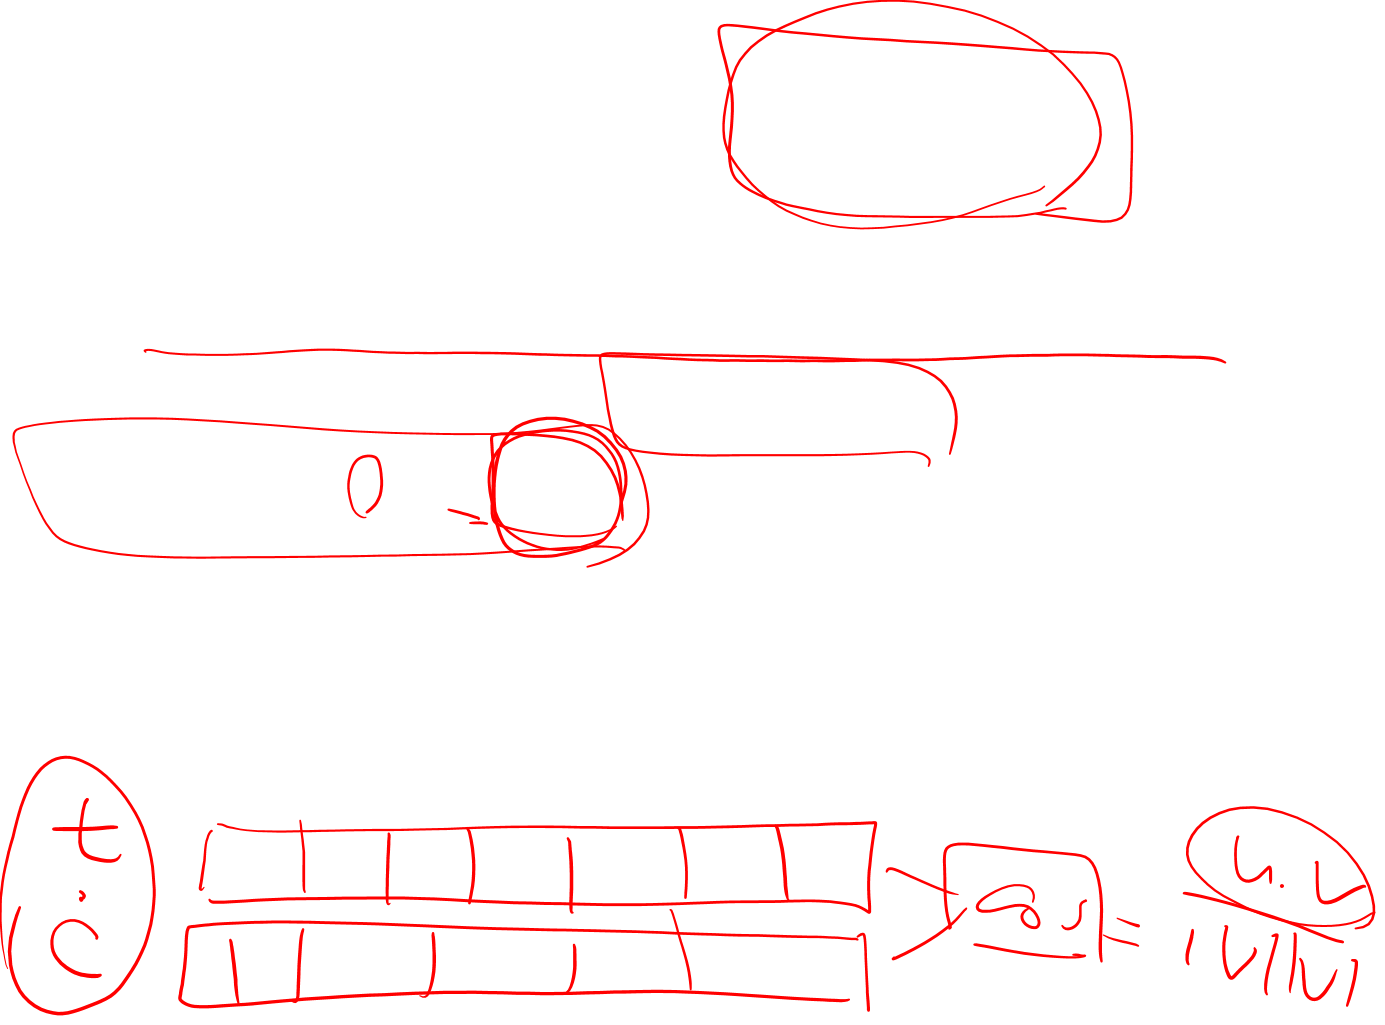 0
t
.
c
cos = u.v
|v||v|